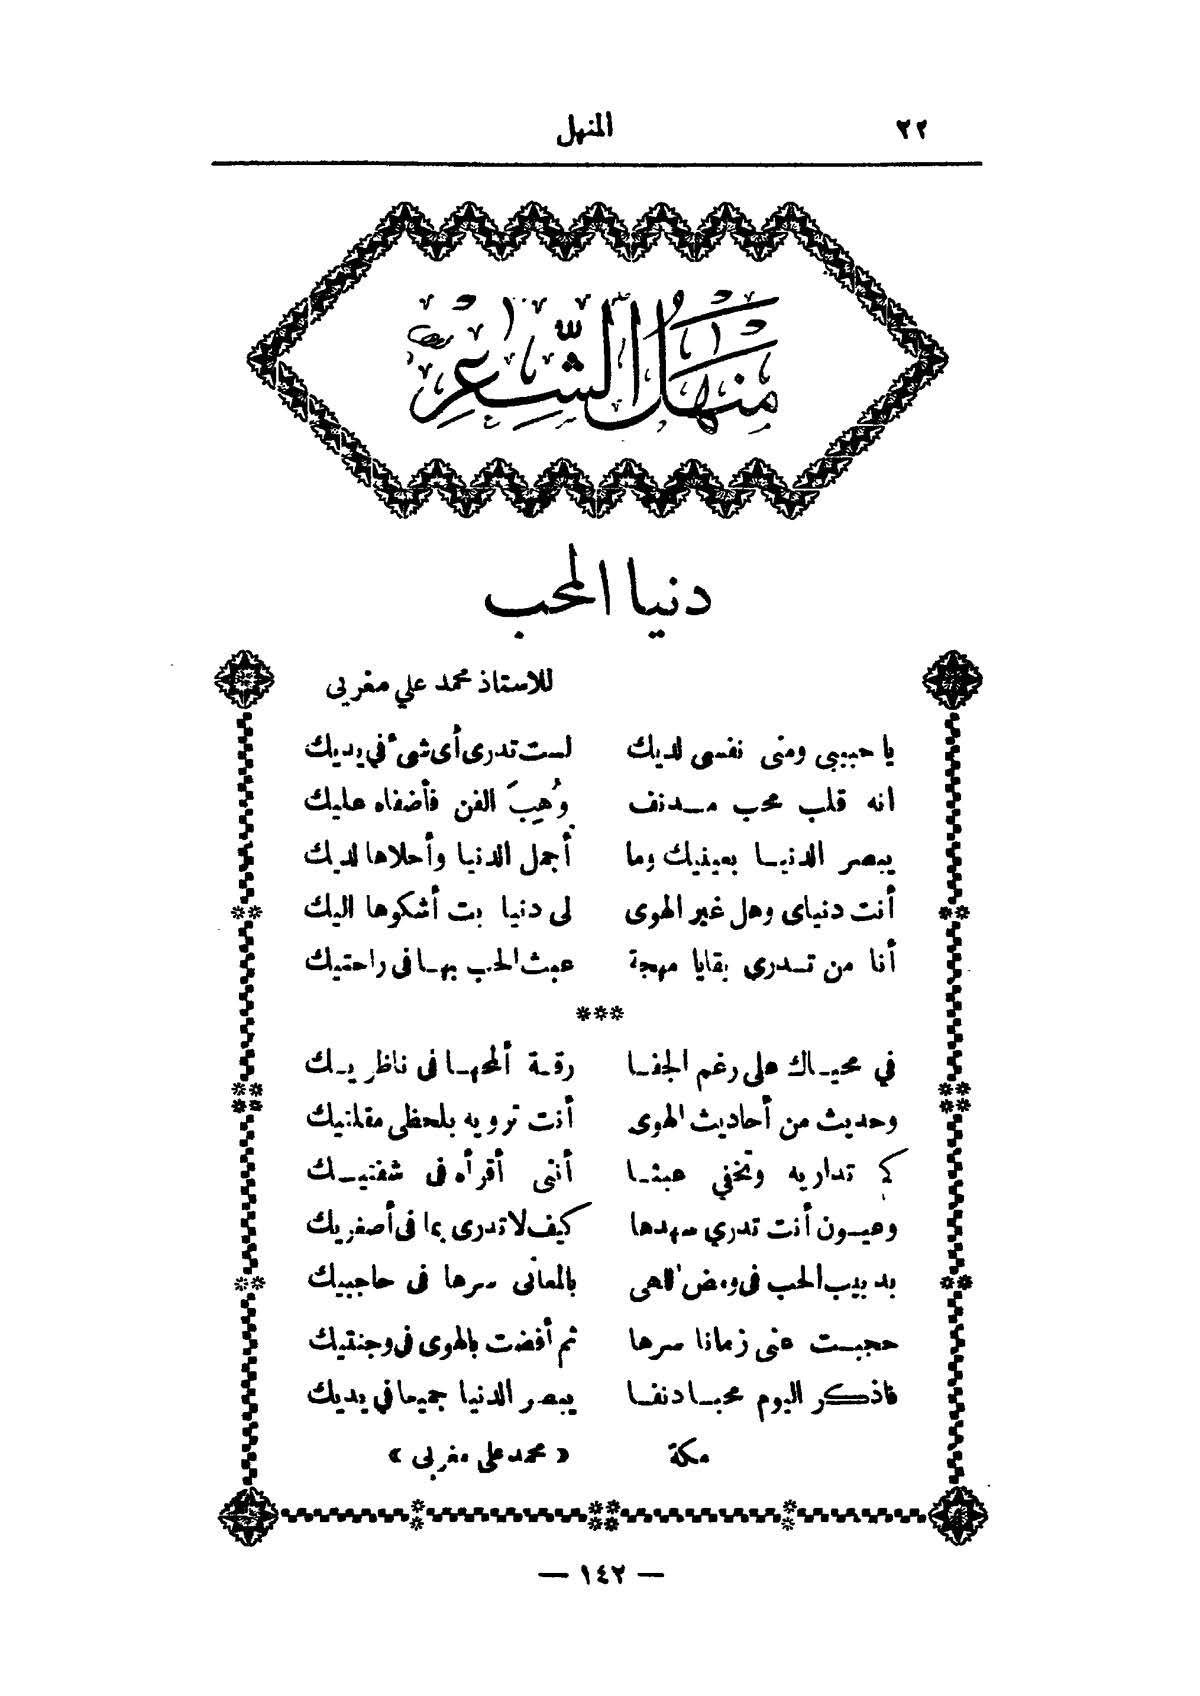 ٢٢ المنهل
منهل الشعر
دنيا المحب
للاستاذ محمد علي مغربى
يا حبيبى ومنى نفسى لديك لست تدرى أى شىء في يديك
انه قلب محب مدنف وُهِبَ الفن فأضفاه عليك
يبصر الدنيا بعينيك وما أجمل الدنيا وأحلاها لديك
أنت دنياى وهل غير الهوى لى دنيا بت أشكوها اليك
أنا من تدرى بقايا مهجة عبث الحب بها فى راحتيك
***
في محياك على رغم الجفا رقة ألمحها فى ناظريك
وحديث من أحاديث الهوى أنت ترويه بلحظى مقلتيك
كم تداريه وتخفي عبثا أننى أقرأه فى شفتيك
وعيون أنت تدري سهدها كيف لا تدرى بما فى أصغريك
بدبيب الحب فى ومض بالمعانى سرها فى حاجبيك
حجبت عنى زمانا سرها ثم أفضت بالهوى فى وجنتيك
فاذكر اليوم محبا دنفا يبصر الدنيا جميعا في يديك
مكة « محمد على مغربى »
— ١٤٢ —